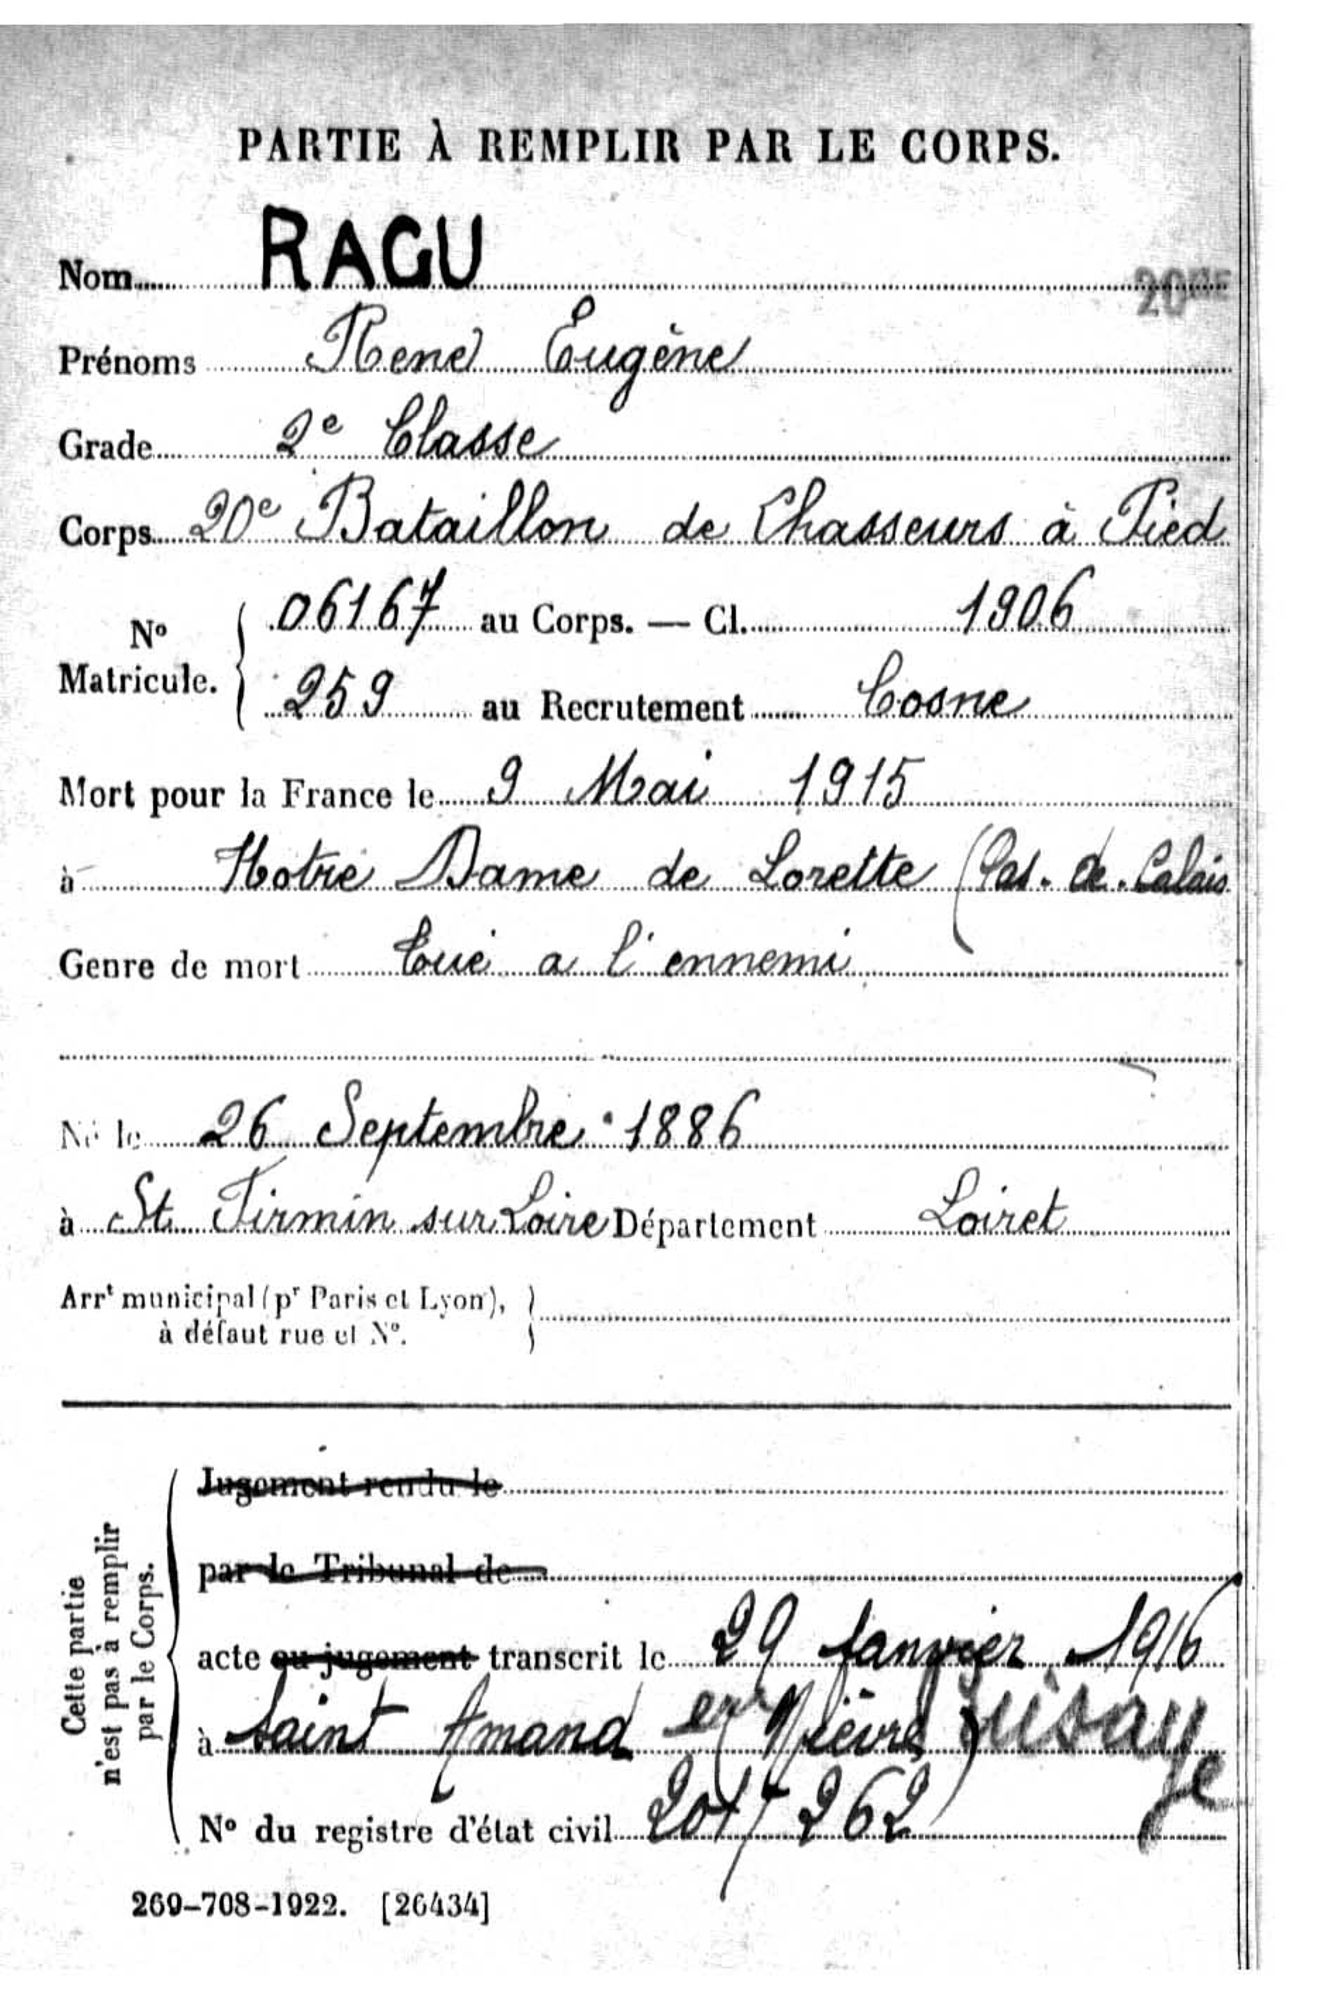 PARTIE À REMPLIR PAR LE CORPS.
Nom RAGU
20ME
Prénoms René Eugène
Grade 2e Classe
Corps 20e Bataillon de Chasseurs à Pied
No Matricule. { 06167 au Corps. — Cl. 1906
259 au Recrutement Cosne
Mort pour la France le 9 Mai 1915
à Notre Dame de Lorette (Pas. de. Calais
Genre de mort Tué a l'ennemi
Né le 26 Septembre 1886
à St Firmin sur Loire Département Loiret
Arrt municipal (pr Paris et Lyon),
à défaut rue et No. }
Cette partie
n'est pas à remplir
par le Corps.
Jugement rendu le
par le Tribunal de
acte ou jugement transcrit le 29 Janvier 1916
à Saint Amand en Puisaye (Nièvre)
No du registre d'état civil 262
269-708-1922. [26434]